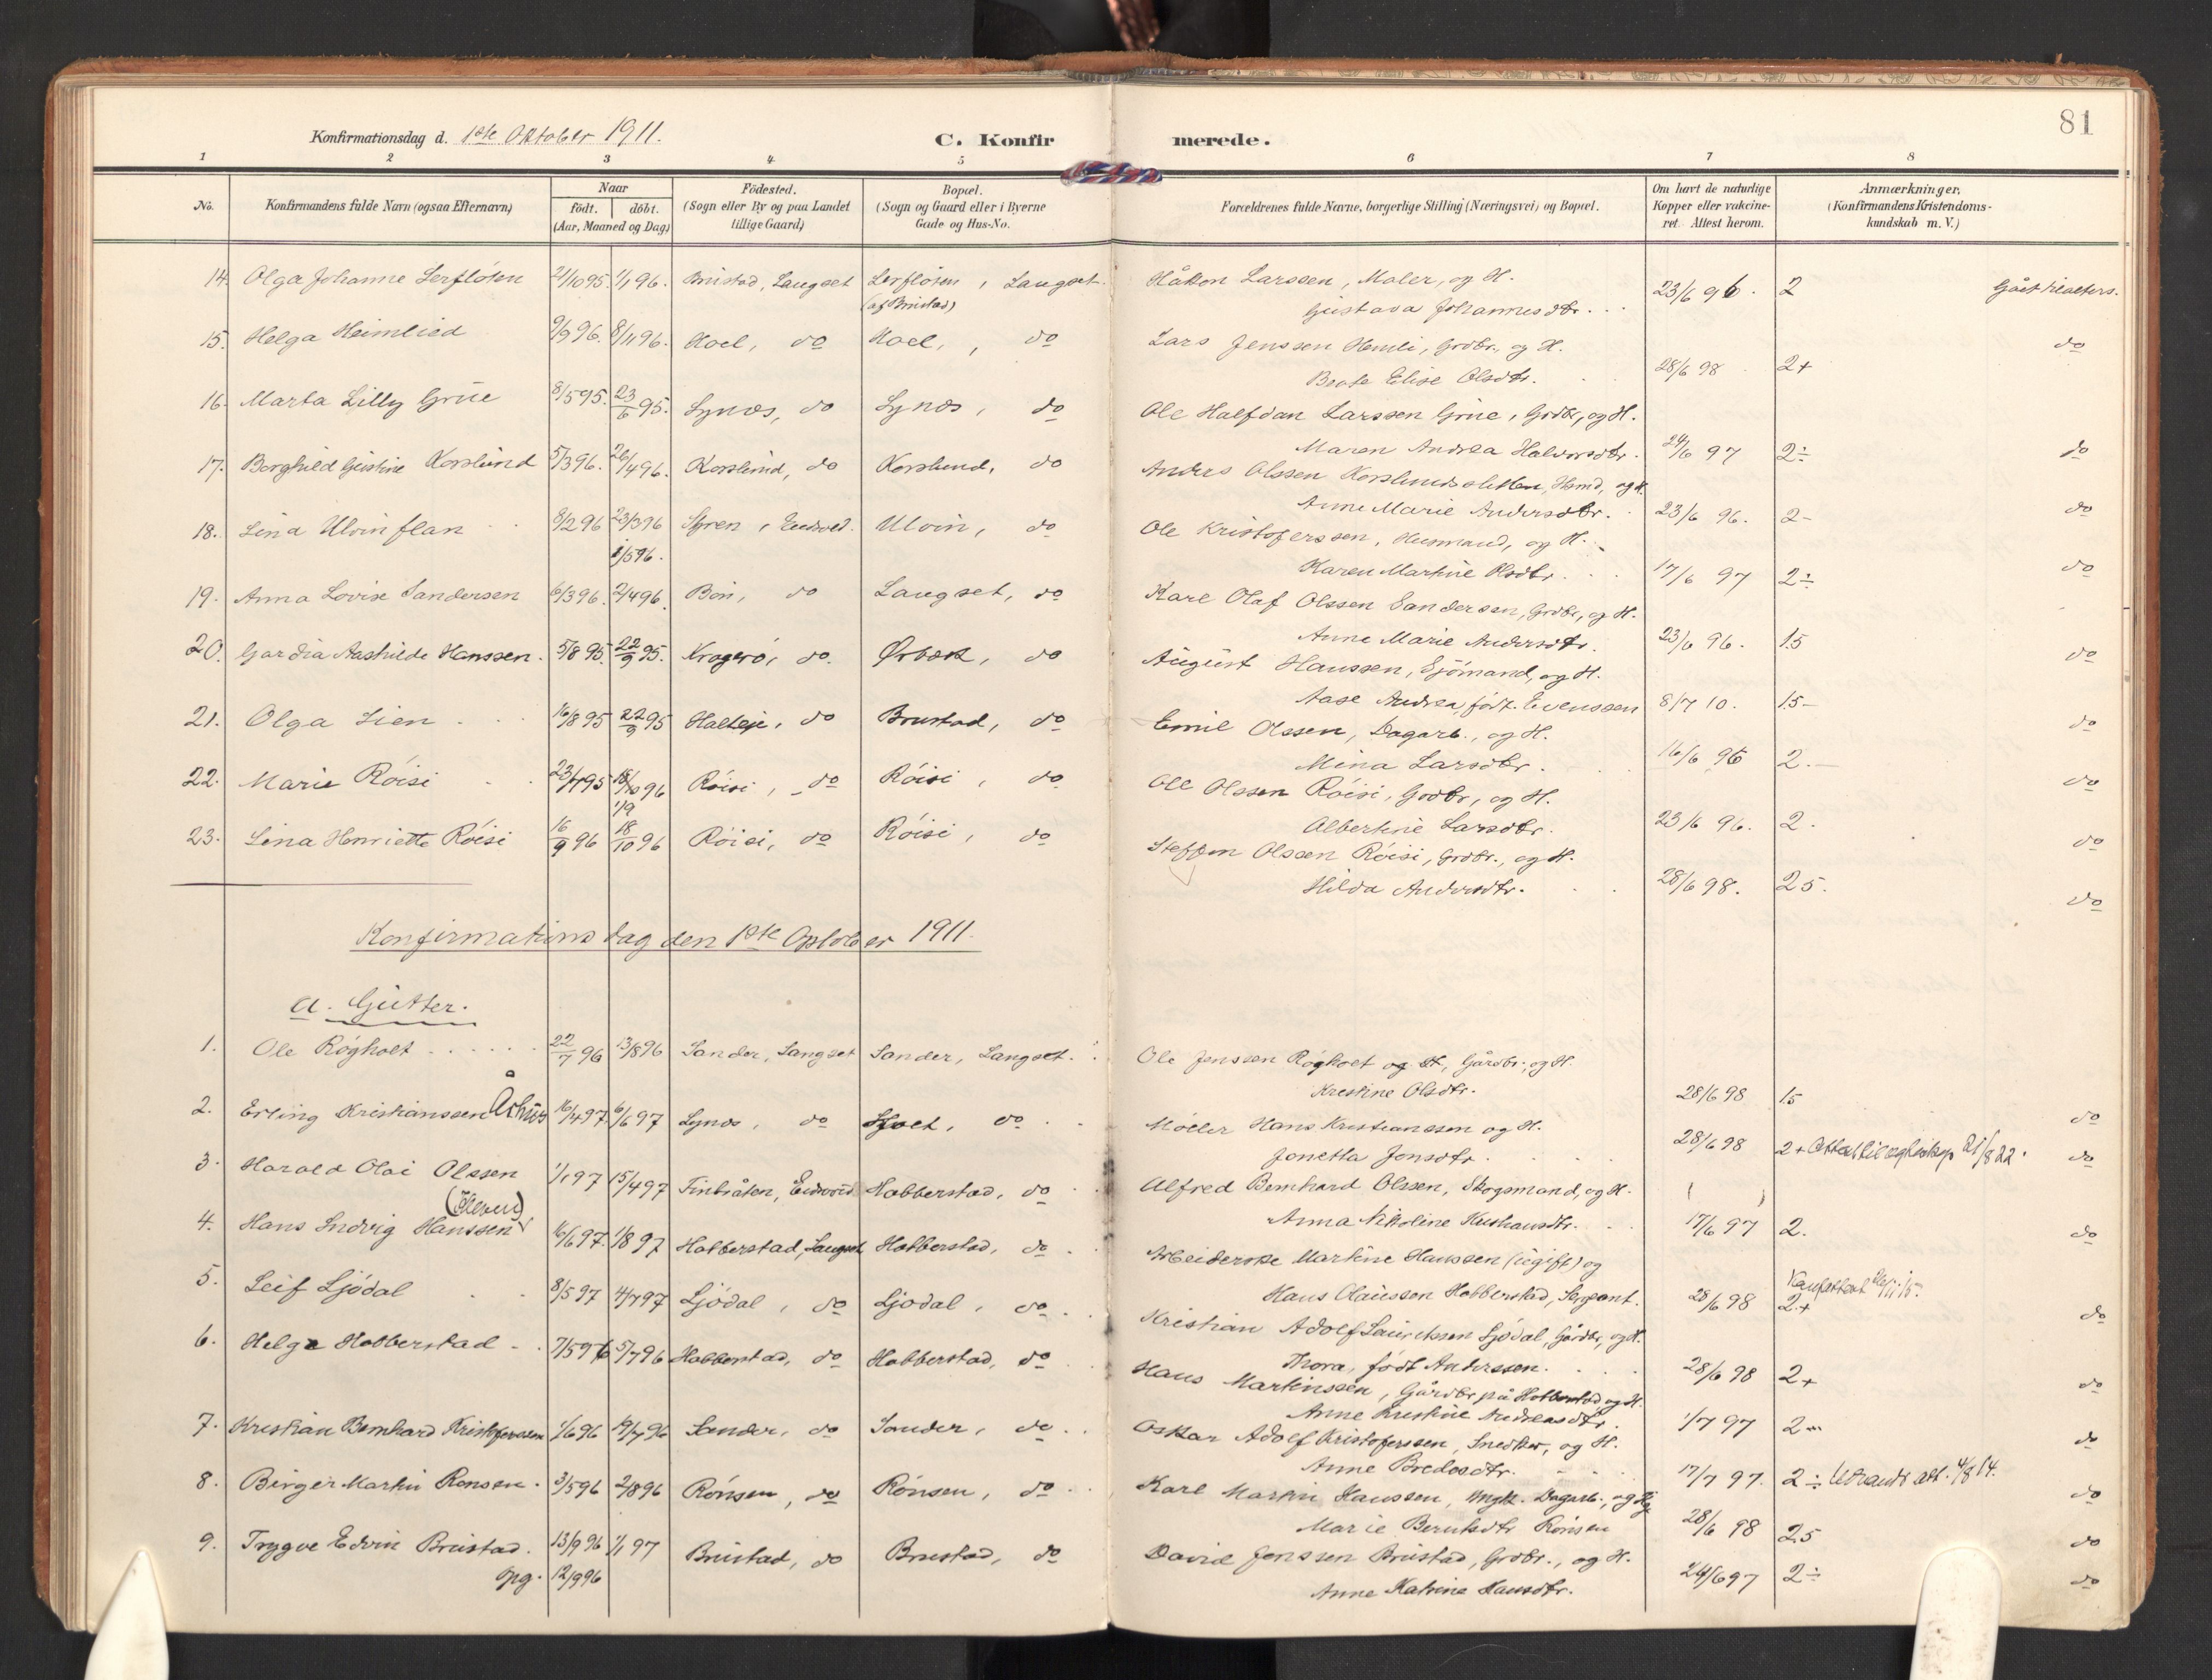 81
Konfirmationsdag d. 1ste Oktober 1911.
C. Konfirmerede.
1 2 3 4 5 6 7 8
No.
Konfirmandens fulde Navn (ogsaa Efternavn)
Naar
født. døbt.
(Aar, Maaned og Dag)
Fødested.
(Sogn eller By og paa Landet tillige Gaard)
Bopæl.
(Sogn og Gaard eller i Byerne Gade og Hus-No.
Forældrenes fulde Navne, borgerlige Stilling (Næringsvei) og Bopæl.
Om havt de naturlige Kopper eller vakcineret. Attest herom.
Anmærkninger.
(Konfirmandens Kristendomskundskab m. V.)
14. Olga Johanne Lerfløten 21/10 95. 1/1 96. Brustad, Langset Lerfløten, Langset. (af Brustad) Håkon Larssen, Maler, og H.
Gustava Johannesdtr. 23/6 96. 2 Gået til alters.
15. Helga Heimlied 9/9 96. 8/11 96. Hoel, do Hoel, do Lars Jenssen Hemli, Grdbr., og H.
Beate Elise Olsdtr. 28/6 98 2+ do
16. Marta Lilly Grue 8/5 95. 23/6 95. Lynæs, do Lynæs, do Ole Halfdan Larssen Grue, Grdbr, og H.
Maren Andrea Halvorsdtr. 24/6 97 2÷ do
17. Borghild Gustine Korslund 5/3 96. 26/4 96. Korslund, do Korslund, do Anders Olssen Korslundsletten, Hsmd, og H.
Anne Marie Andersdtr. 23/6 96. 2- do
18. Lina Ulvinflan 8/2 96 23/3 96 Styren, Eidsvold. Ulvin, do Ole Kristoferssen, Husmand, og H.
1/5 96.
Karen Martine Olsdtr. 17/6 97 2÷ do
19. Anna Lovise Sandersen 6/3 96. 2/4 96. Bøn, do Langset, do Karl Olaf Olssen Sandersen, Grdbr, og H.
Anne Marie Andersdtr. 23/6 96. 1.5 do
20. Gardia Aashilde Hanssen. 5/8 95. 22/9 95. Kragerø, do. Ørbæk, do August Hanssen, Sjømand, og H.
Aase Andrea, født Evenssen 8/7 10. 1.5- do
21. Olga Lien 16/8 95 22/9 95 Halteje, do Brustad, do Emil Olssen, Dagarb., og H.
Mina Larsdtr. 16/6 96 2.- do
22. Marie Røisi 23/7 95 18/10 96 Røisi, do Røisi, do Ole Olssen Røisi, Grdbr, og H.
1/9
Albertine Larsdtr. 23/6 96. 2. do
23. Lina Henriette Røisi 16/9 96 18/10 96 Røisi, do Røisi, do Steffen Olssen Røisi, Grdbr., og H.
Hilda Andersdtr. 28/6 98. 2.5. do
Konfirmationsdag den 1ste Oktober 1911.
a. Gutter.
1. Ole Røgholt 22/7 96 13/8 96 Sander, Langset Sander, Langset. Ole Jenssen Røgholt og H., Gårdbr., og H.
Kristine Olsdtr. 28/6 98 1.5 do
2. Erling Kristianssen Århus 16/4 97. 6/6 97 Lynæs, do do Møller Hans Kristianssen og H.
Jonetta Jonsdtr. 28/6 98 2+ Attest til ægteskap 21/8 22. do
3. Harald Olai Olssen 1/1 97 15/4 97 Tinbråten, Eidsvold Habberstad, do Alfred Bernhard Olssen, Skogsmand, og H.
Anna Nikoline 17/6 97 2. do
4. Hans Ludvig Hanssen 16/6 97. 1/8 97 Habberstad, Langset Habberstad, do Arbeiderske Martine Hanssen (ugift) og
Hans Olaussen Habberstad, Sergeant. 28/6 98 2+ do
5. Leif Ljødal 8/5 97 4/7 97 Ljødal, do Ljødal, do Kristian Adolf Lauritssen Ljødal, Gårdbr, og H.
Thora, født Anderssen. 28/6 98 2+ do
6. Helge Habberstad 7/5 96 5/7 96 Habberstad, do Habberstad, do Hans Martinssen, Gårdbr på Habberstad og H.
Anne Kristine Andreasdtr. 1/7 97 2- do
7. Kristian Bernhard Kristoferssen 1/6 96 19/7 96 Sander, do Sander, do Oskar Adolf Kristoferssen, Snedker, og H.
Anne Bredesdtr. 17/7 97. 2÷ Utvandr. att. 4/8 14. do
8. Birger Martin Rønsen. 3/5 96 2/8 96 Rønsen, do Rønsen, do Karl Martin Hanssen, Dagarb., og H.
Marie Berntsdtr Rønsen 28/6 98 2.5 do
9. Trygve Edvin Brustad. 13/9 96 1/1 97 Brustad, do Brustad, do David Jenssen Brustad, Grdbr., og H.
opg. 12/9 96
Anne Katrine Hansdtr. 24/6 97 2÷ do